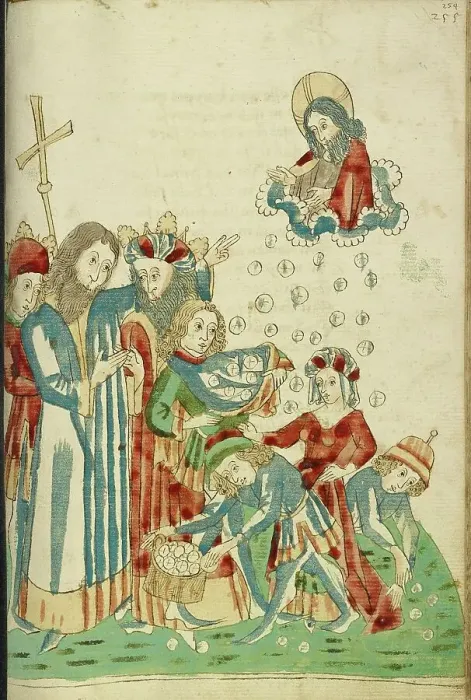 254
255